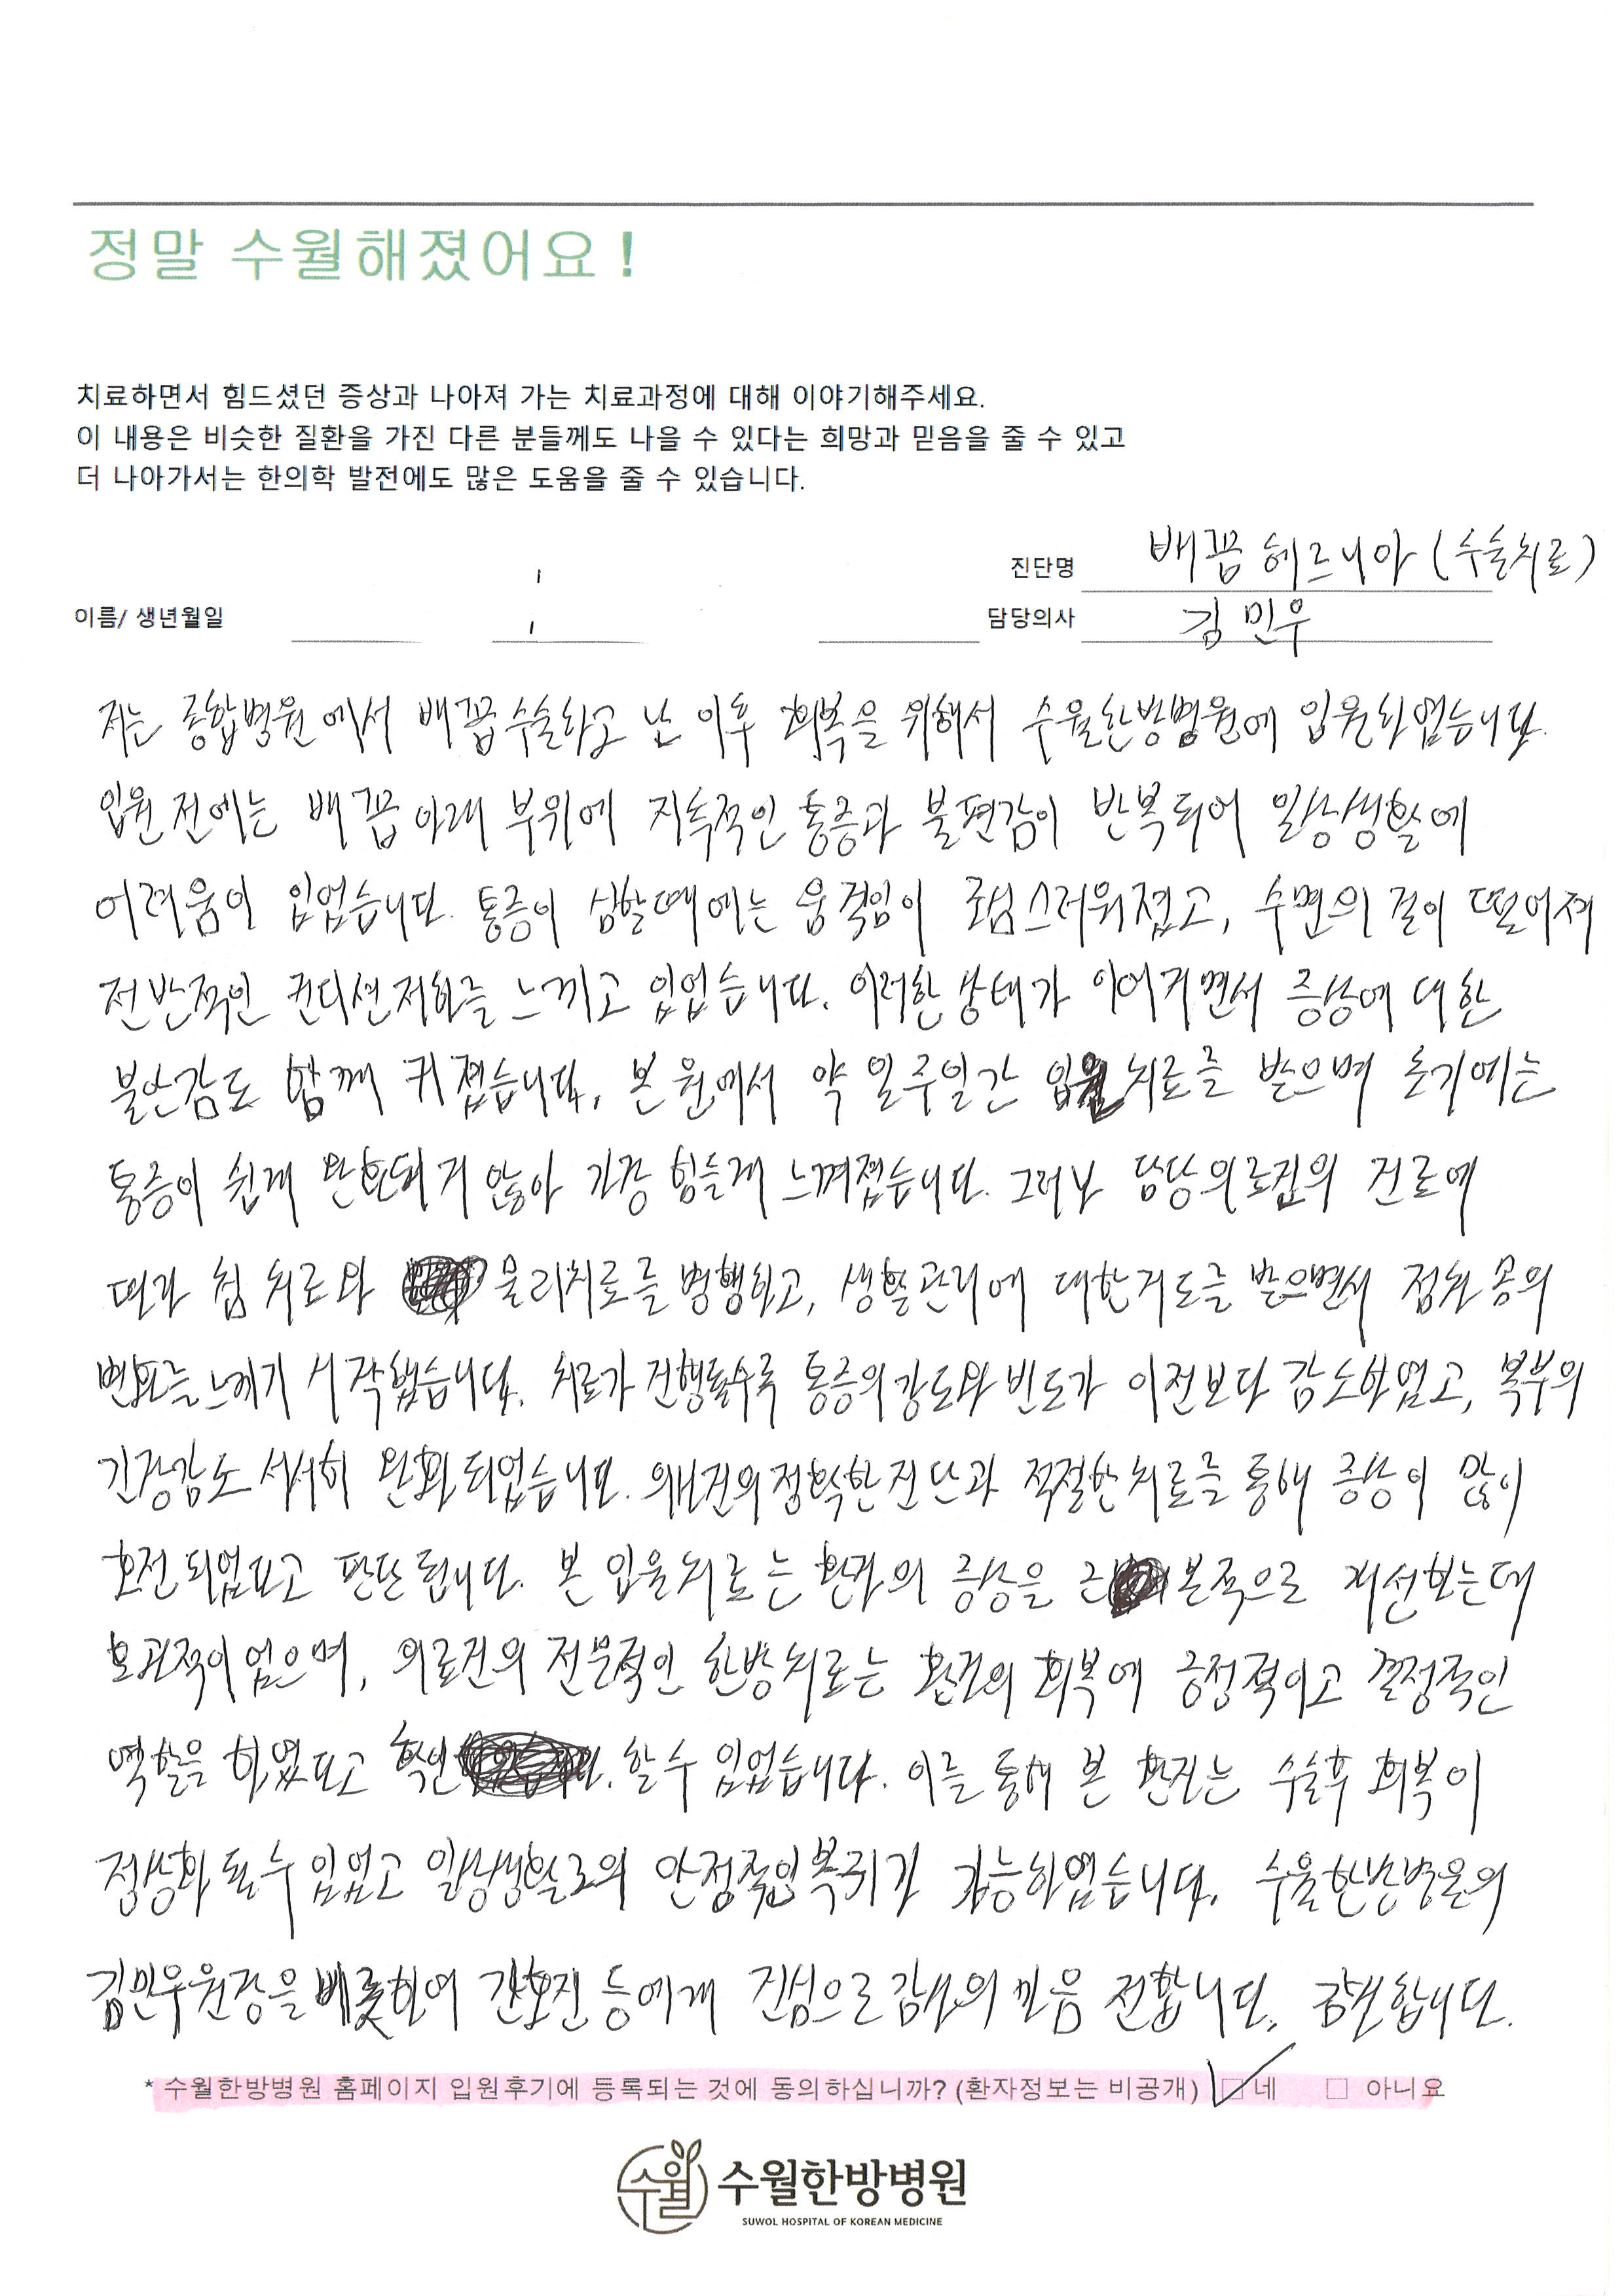 정말 수월해졌어요!
치료하면서 힘드셨던 증상과 나아져 가는 치료과정에 대해 이야기해주세요.
이 내용은 비슷한 질환을 가진 다른 분들께도 나을 수 있다는 희망과 믿음을 줄 수 있고
더 나아가서는 한의학 발전에도 많은 도움을 줄 수 있습니다.
진단명 배꼽 헤르니아 (수술치료)
이름/ 생년월일 담당의사 김민우
저는 종합병원에서 배꼽수술하고 난 이후 회복을 위해서 수월한방병원에 입원하였습니다.
입원 전에는 배꼽 아래 부위에 지속적인 통증과 불편감이 반복되어 일상생활에
어려움이 있었습니다. 통증이 심할때에는 움직임이 조심스러워졌고, 수면의 질이 떨어져
전반적인 컨디션저하를 느끼고 있었습니다. 이러한 상태가 이어지면서 증상에 대한
불안감도 함께 커졌습니다. 본원에서 약 일주일간 입원치료를 받으며 초기에는
통증이 쉽게 완화되지 않아 가장 힘들게 느껴졌습니다. 그러나 담당의료진의 진료에
따라 침 치료와 물리치료를 병행하고, 생활관리에 대한지도를 받으면서 점차 몸의
변화를 느끼기 시작했습니다. 치료가 진행될수록 통증의 강도와 빈도가 이전보다 감소하였고, 복부의
긴장감도 서서히 완화되었습니다. 의료진의 정확한 진단과 적절한 치료를 통해 증상이 많이
호전되었다고 판단됩니다. 본 입원치료는 환자의 증상을 근본적으로 개선하는데
효과적이었으며, 의료진의 전문적인 한방치료는 환자의 회복에 긍정적이고 결정적인
역할을 하였다고 확인 할수 있었습니다. 이를 통해 본 환자는 수술후 회복이
정상화 될 수 있었고 일상생활로의 안정적인 복귀가 가능하였습니다. 수월한방병원의
김민우원장을 비롯하여 간호진 등에게 진심으로 감사의 마음 전합니다. 감사합니다.
* 수월한방병원 홈페이지 입원후기에 등록되는 것에 동의하십니까? (환자정보는 비공개) ☑ 네 □ 아니요
수월 수월한방병원
SUWOL HOSPITAL OF KOREAN MEDICINE